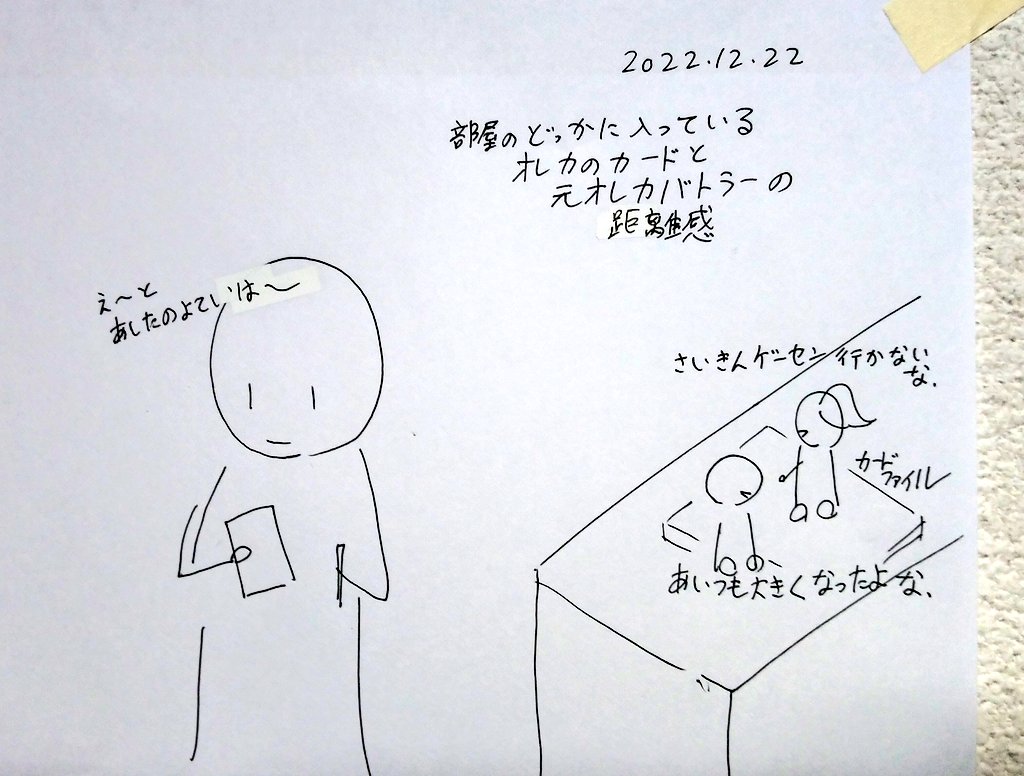 2022.12.22
部屋のどっかに入っている
オレカのカードと
元オレカバトラーの
距離感
え〜と
あしたのよていは〜
さいきんゲーセン行かない
な.
カード
ファイル
あいつも大きくなったよな.